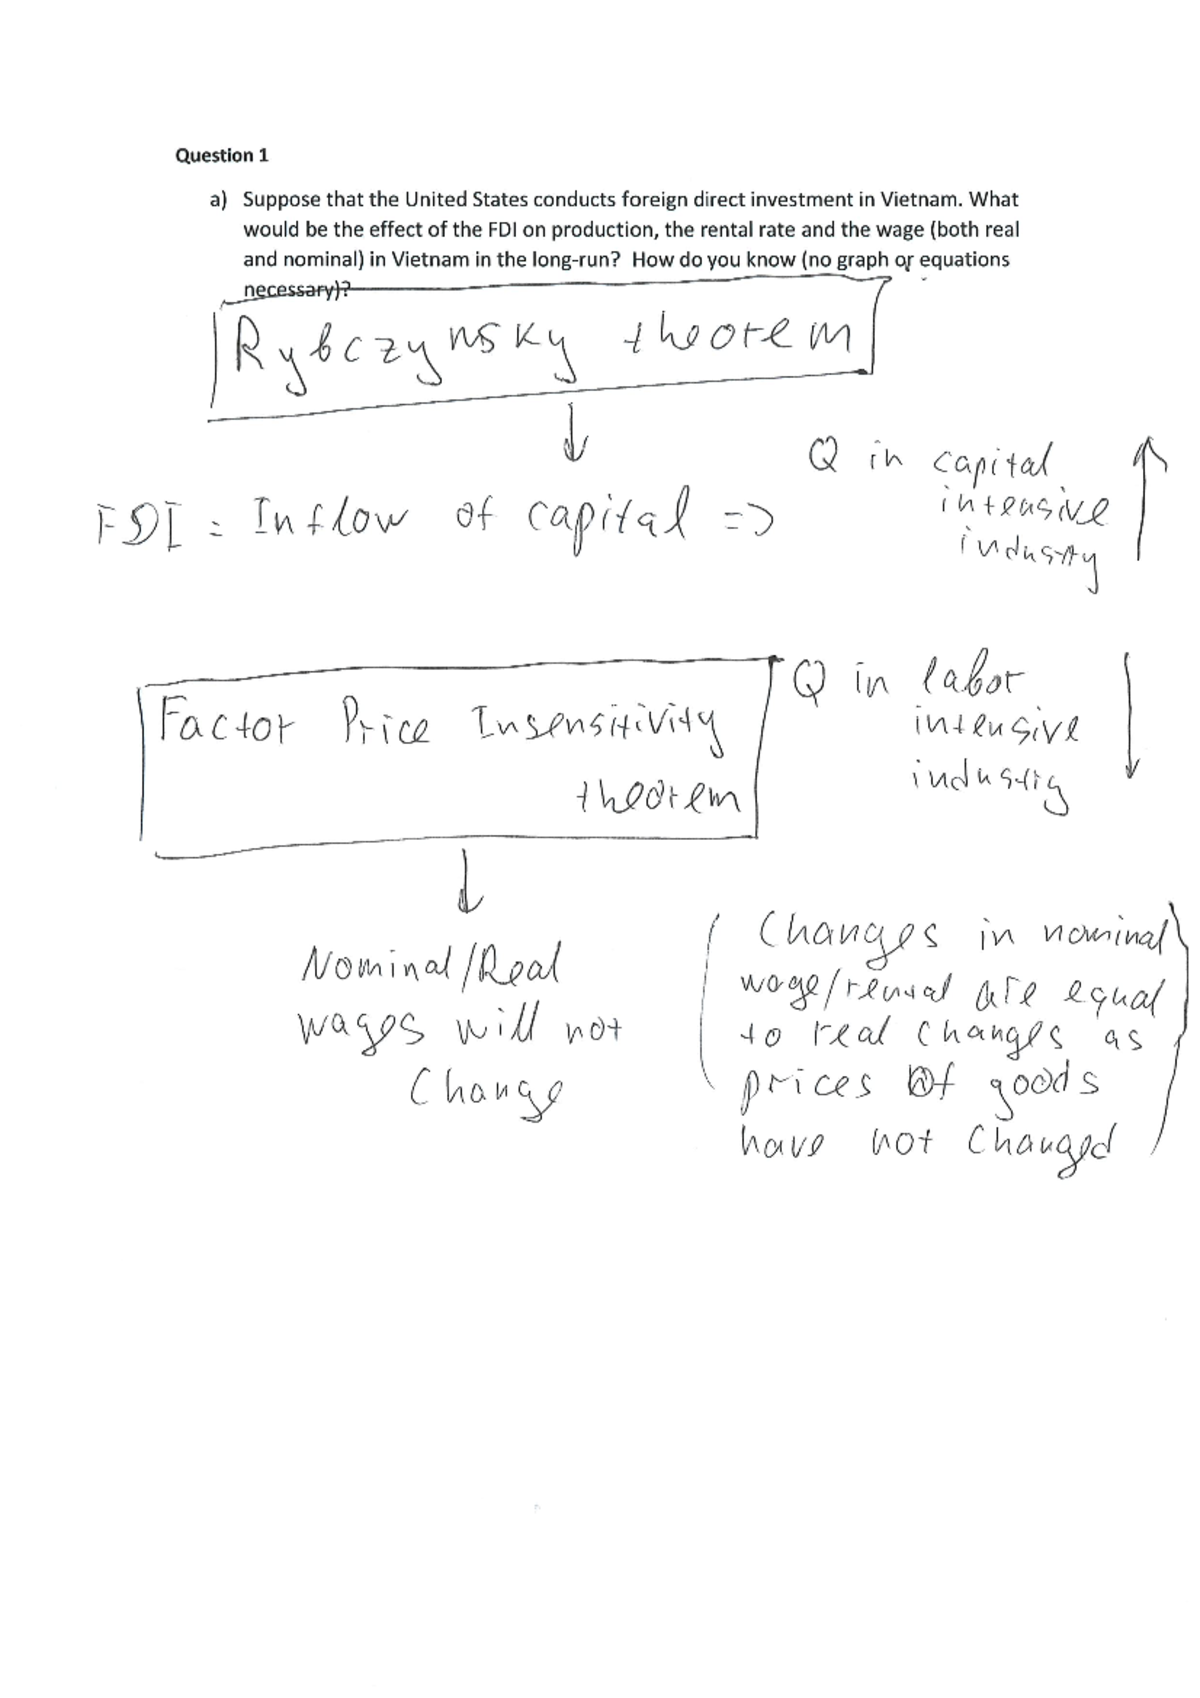 Question 1
a) Suppose that the United States conducts foreign direct investment in Vietnam. What
would be the effect of the FDI on production, the rental rate and the wage (both real
and nominal) in Vietnam in the long-run? How do you know (no graph or equations
necessary)?
Rybczynsky theorem
FDI = Inflow of capital =>
Q in capital
intensive
industry
Q in labor
intensive
industry
Factor Price Insensitivity
theorem
Nominal/Real
wages will not
Change
(Changes in nominal
wage/rental are equal
to real changes as
prices of goods
have not Changed)